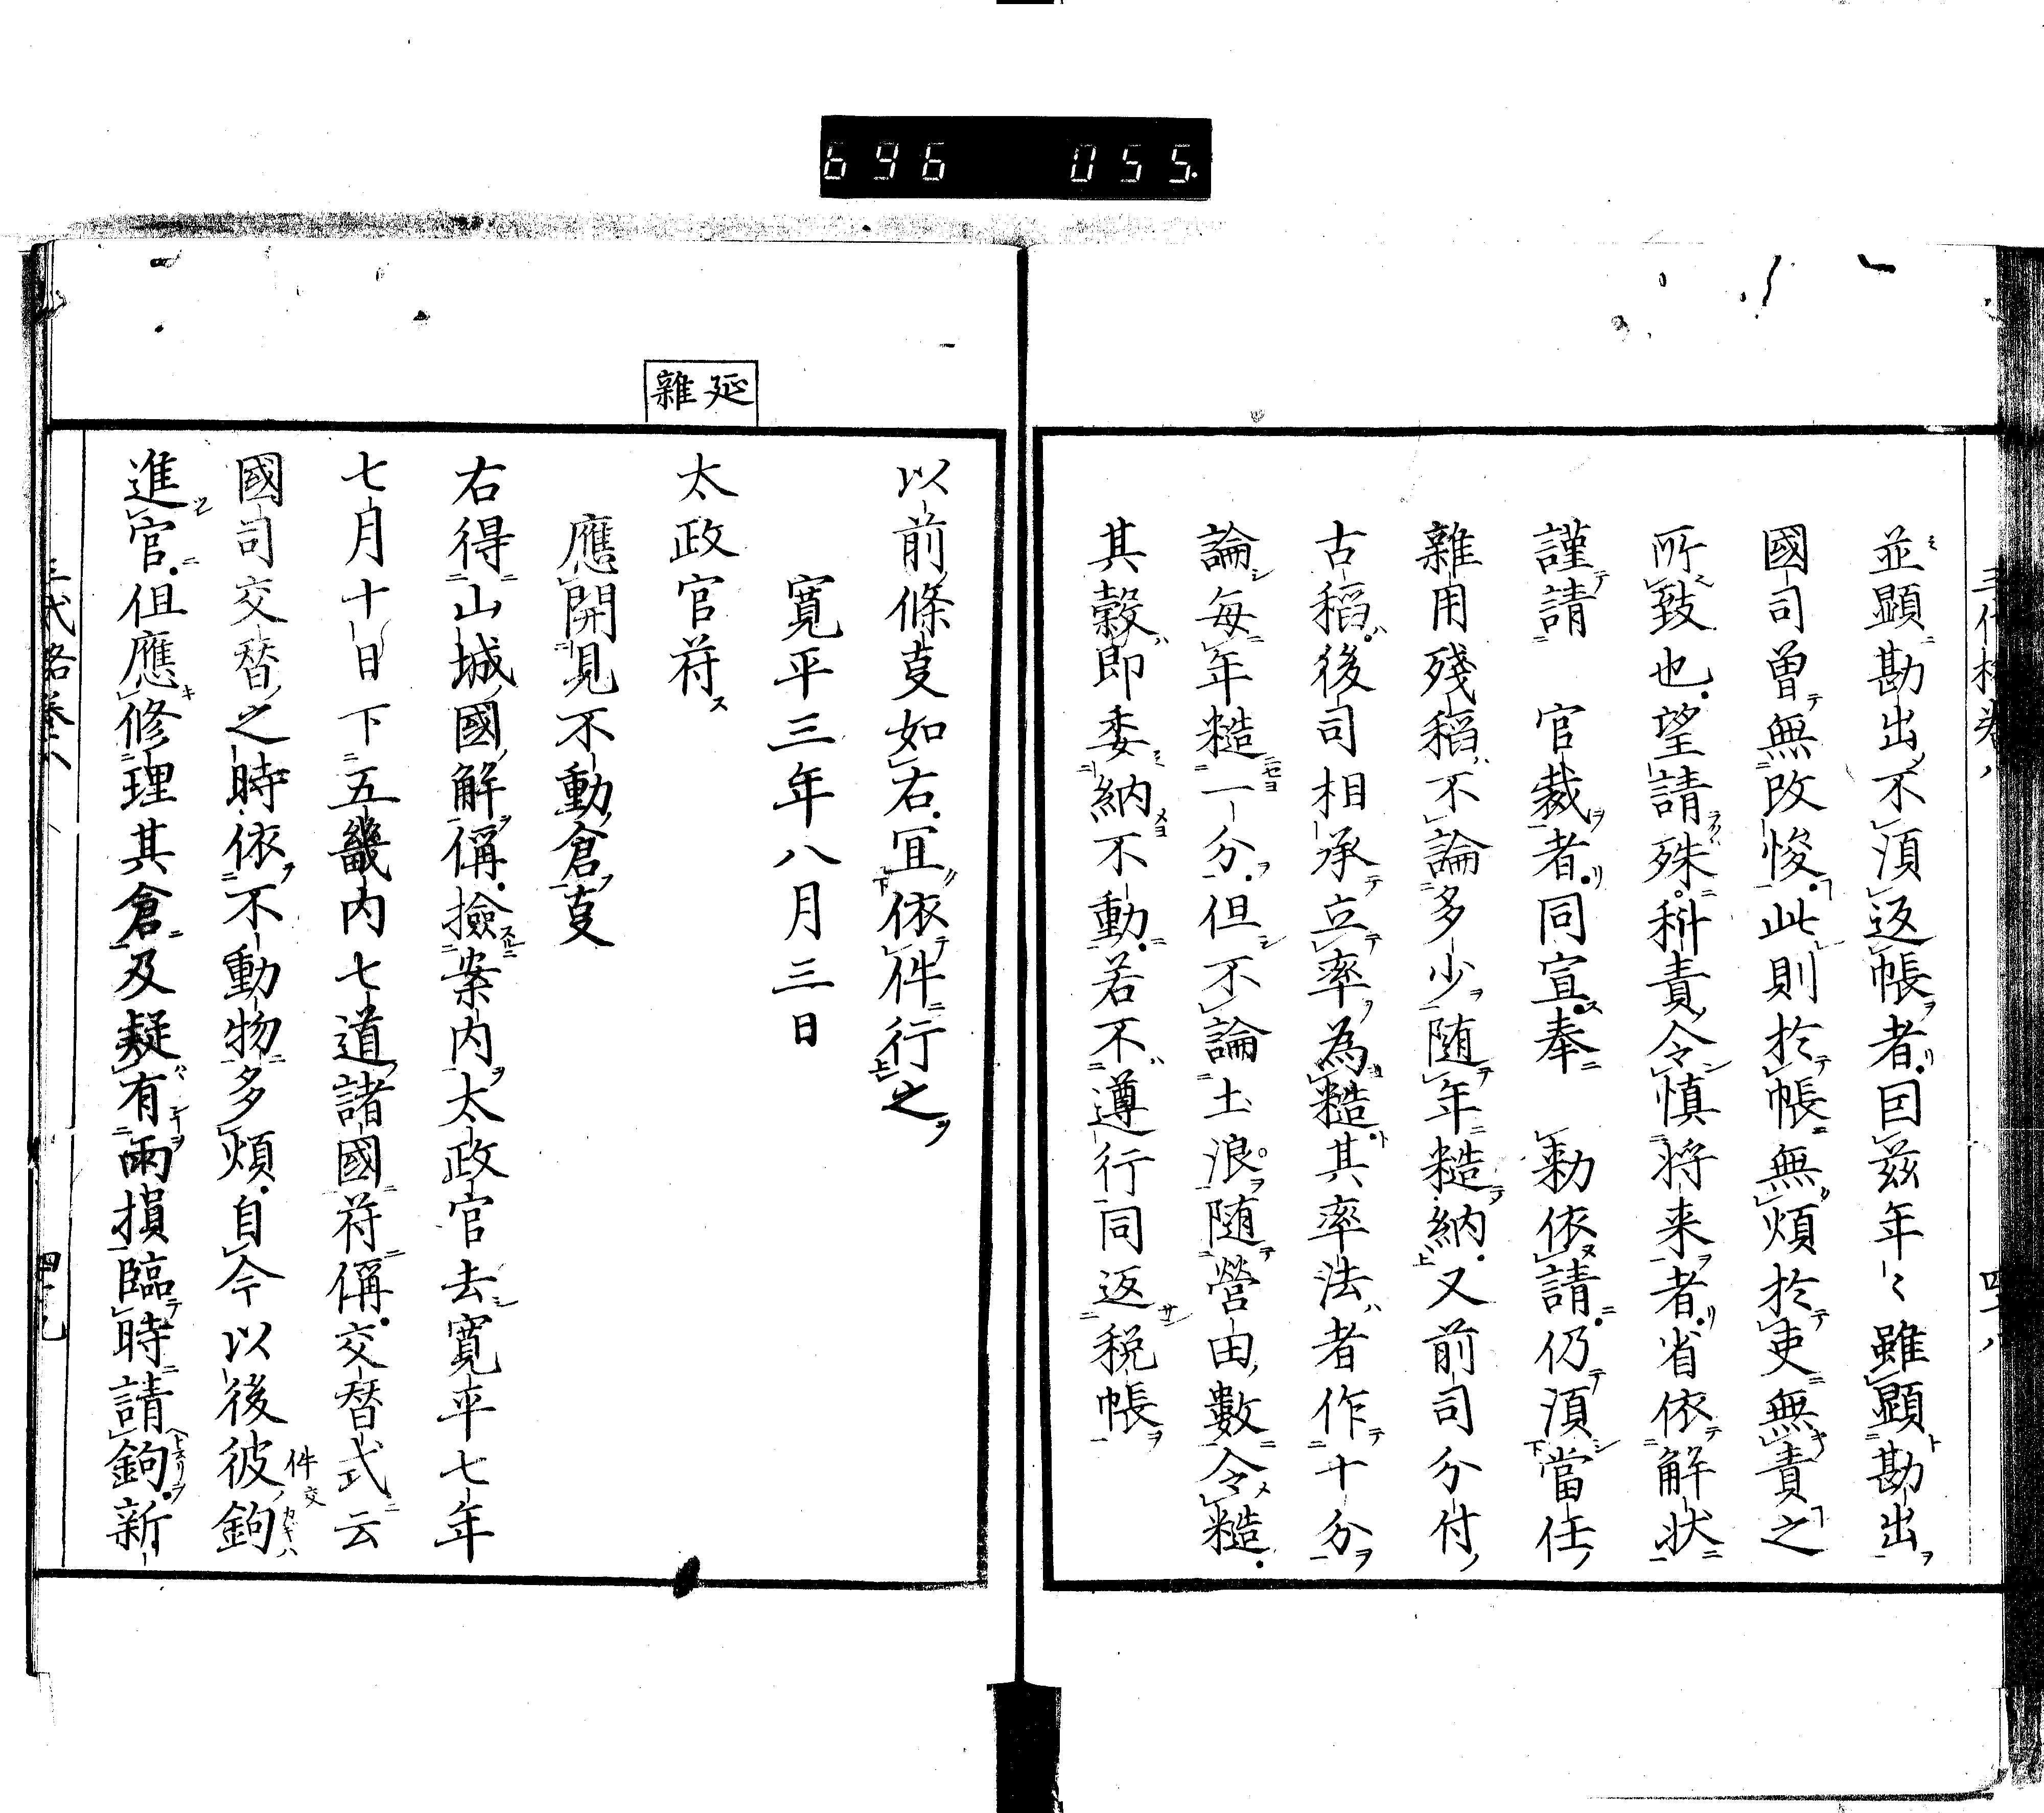 696 055
並顕勘出不須返帳者因茲年〻雖顕勘出
國司曽無改悛此則於帳無煩於吏無責之
所致也望請殊科責令慎将来者省依解状
謹請 官裁者同宣奉 勅依請仍須當任
雜用殘稲不論多少随年糙納又前司分付
古稲後司相承立率為糙其率法者作十分
論毎年糙一分但不論土浪随營由數令糙
其穀即委納不動若不遵行同返税帳
以前條㕝如右冝依件行之
寛平三年八月三日
延雜
太政官符
應開見不動倉㕝
右得山城國解偁撿案内太政官去寛平七年
七月十日下五畿内七道諸國符偁交替式云
國司交替之時依不動物多煩自今以後彼鉤
件交
進官但應修理其倉及疑有雨損臨時請鉤新